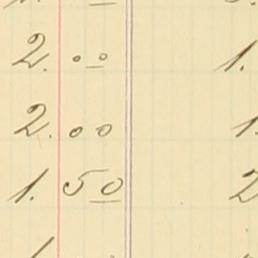 2. 00 1.
2. 00 1.
1. 50 2